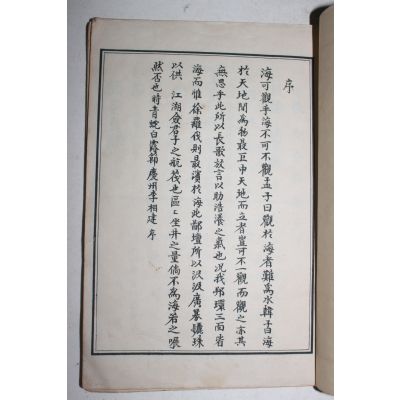 序
海可觀乎海不可不觀孟子曰觀於海者難爲水韓子曰海
於天地間爲物最巨中天地而立者豈可不一觀而觀之亦其
無思乎此所以長歌放言以助浩漢之氣也况我邦環三面皆
海而惟徐羅伐則最濱於海此鄙壇所以汲汲廣募驪珠
以供 江湖僉君子之航筏也區〻坐井之量倘不爲海若之哂
然否也時青蛇白露節慶州李相建 序